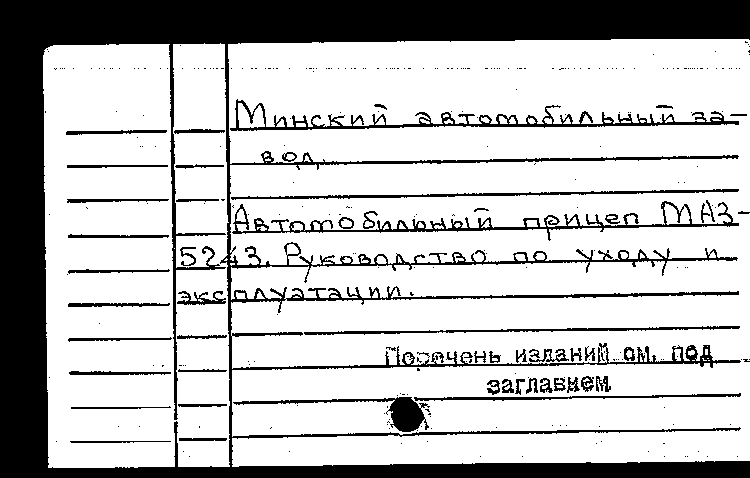 Минский автомобильный за-
вод.
Автомобильный прицеп МАЗ-
5243. Руководство по уходу и
эксплуатации.
Перечень изданий см. под
заглавием